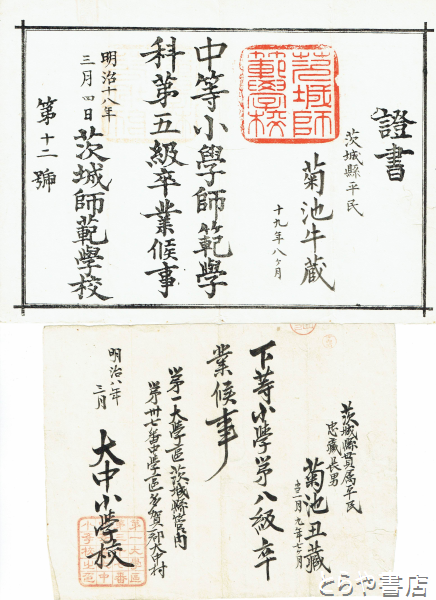 證書
茨城縣平民
菊池牛蔵
十九年八ヶ月
茨城師
範學校
中等小學師範學
科第五級卒業候事
明治十八年
三月四日
茨城師範學校
第十二號
茨城縣貫属平民
忠蔵長男
菊池丑蔵
九年七ヶ月
下等小學第八級卒
業候事
第一大學區茨城縣管内
第卅七番中学區多賀郡大中村
明治八年
三月
大中小學校
とらや書店